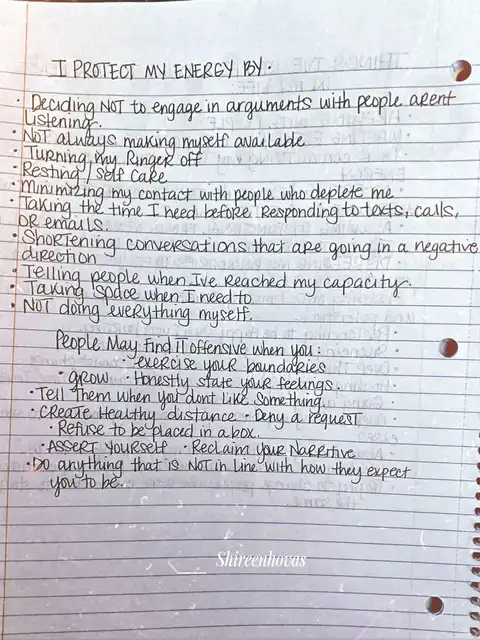 I PROTECT MY ENERGY BY.
· Deciding NOT to engage in arguments with people arent
Listening.
· NOT always making myself available
· Turning my Ringer off
· Resting / self care
· Minimizing my contact with people who deplete me
· Taking the time I need before Responding to texts, calls,
OR emails.
· Shortening conversations that are going in a negative
direction
· Telling people when Ive reached my capacity.
· Taking space when I need to.
· NOT doing everything myself.
People May find IT offensive when you:
· exercise your boundaries
· grow · Honestly state your feelings.
· Tell Them when you dont like something.
· Create Healthy distance · Deny a request
· Refuse to be placed in a box.
· Assert Yourself · Reclaim your Narritive
· Do anything that is NOT in line with how they expect
you to be.
Shireenhovas